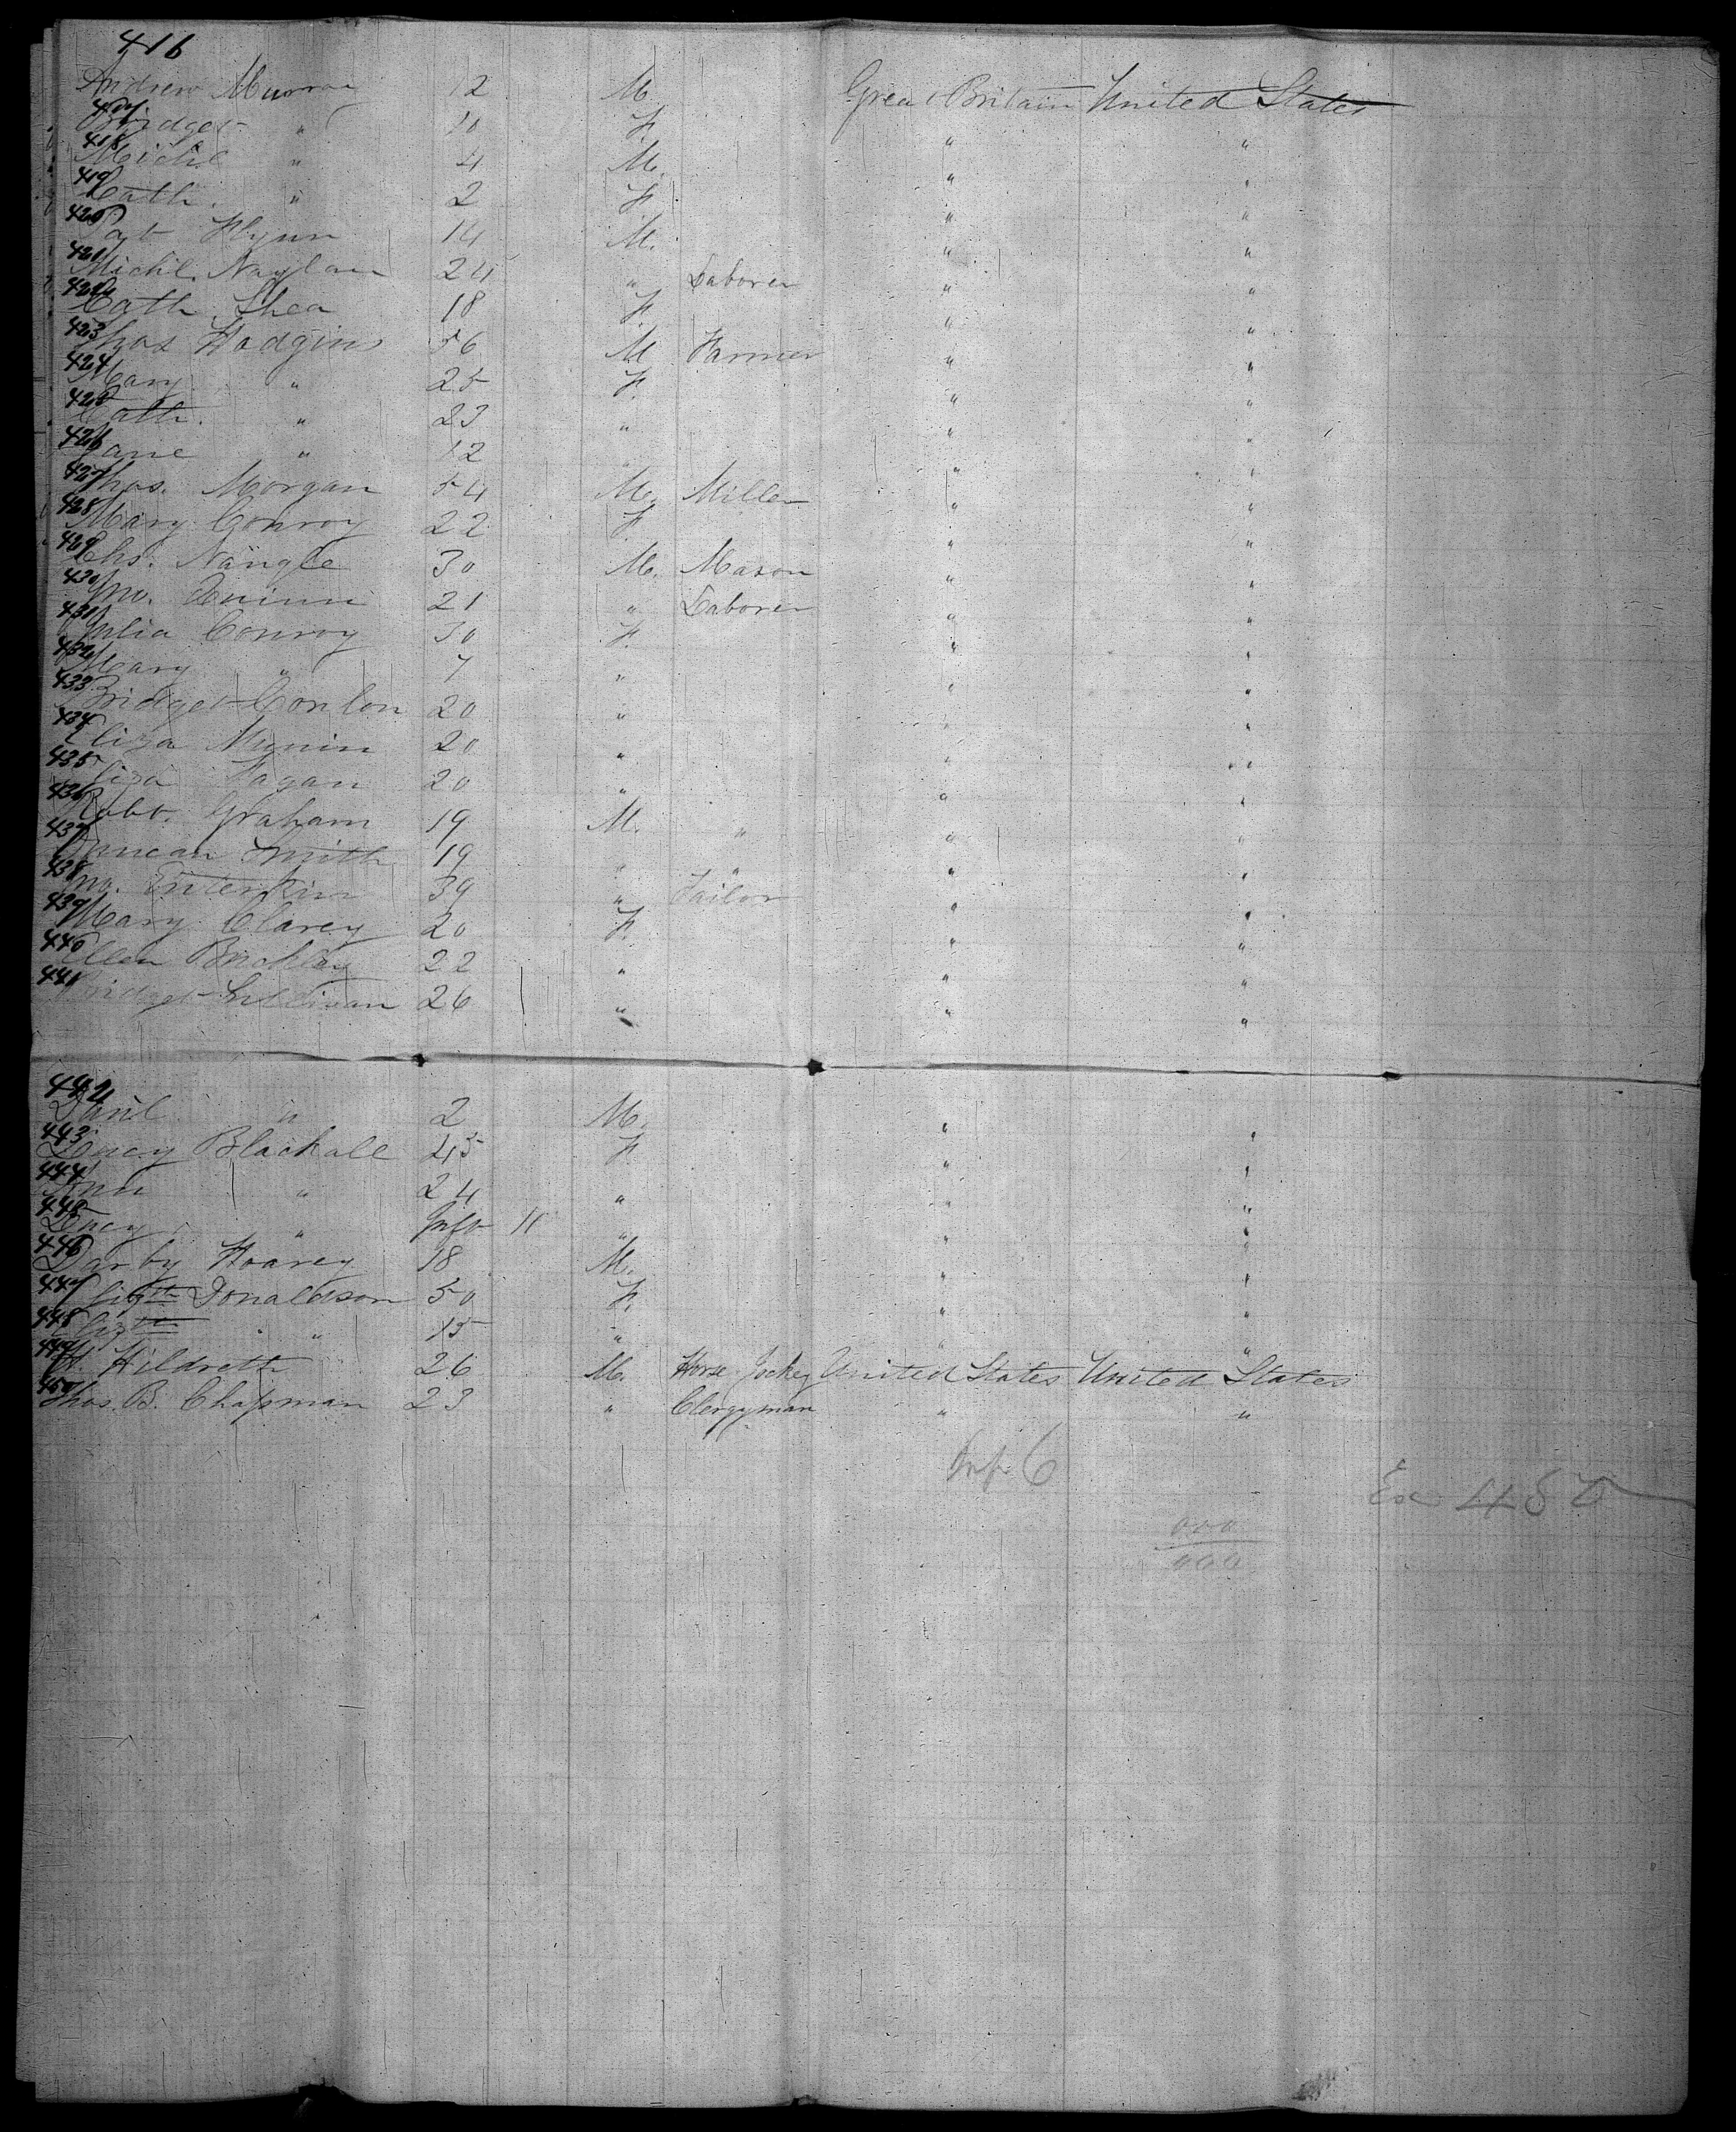 416
Andrew Murray 12 M. Great Britain United States
417
Bridget " 10 F. " "
418
Michl " 4 M. " "
419
Cath. " 2 F. " "
420
Pat Flynn 14 M. " "
421
Michl. Naylan 24 " Laborer " "
422
Cath Shea 18 F. " "
423
Thos Hodgins 56 M Farmer " "
424
Mary " 25 F. " "
425
Cath. " 23 " " "
426
Jane " 12 " " "
427
Thos. Morgan 54 M. Miller " "
428
Mary Conroy 22 F. " "
429
Chs. Nangle 30 M. Mason " "
430
Jno. Quinn 21 " Laborer " "
431
Julia Conroy 30 F. " "
432
Mary " 7 " " "
433
Bridget Conlon 20 " " "
434
Eliza 20 " " "
435
Eliza Fagan 20 " " "
436
Robt. Graham 19 M. " " "
437
Duncan Smith 19 " " " "
438
Jno. Entenkin 39 " Tailor " "
439
Mary Clarey 20 F. " "
440
Ellen Buckley 22 " " "
441
Bridget Sullivan 26 " " "
442
Danl " 2 M. " "
443
Lucy Blackall 45 F. " "
444
Ann " 24 " " "
445
Lucy " Inft 11 " " "
446
Darby Hoarey 18 M. " "
447
Elizth Donaldson 50 F. " "
448
Elizth " 15 " " "
449
Hildreth 26 M. Horse Jockey United States United States
450
Thos. B. Chapman 23 " Clergyman " "
Inf. 6
Ex 450
000
000